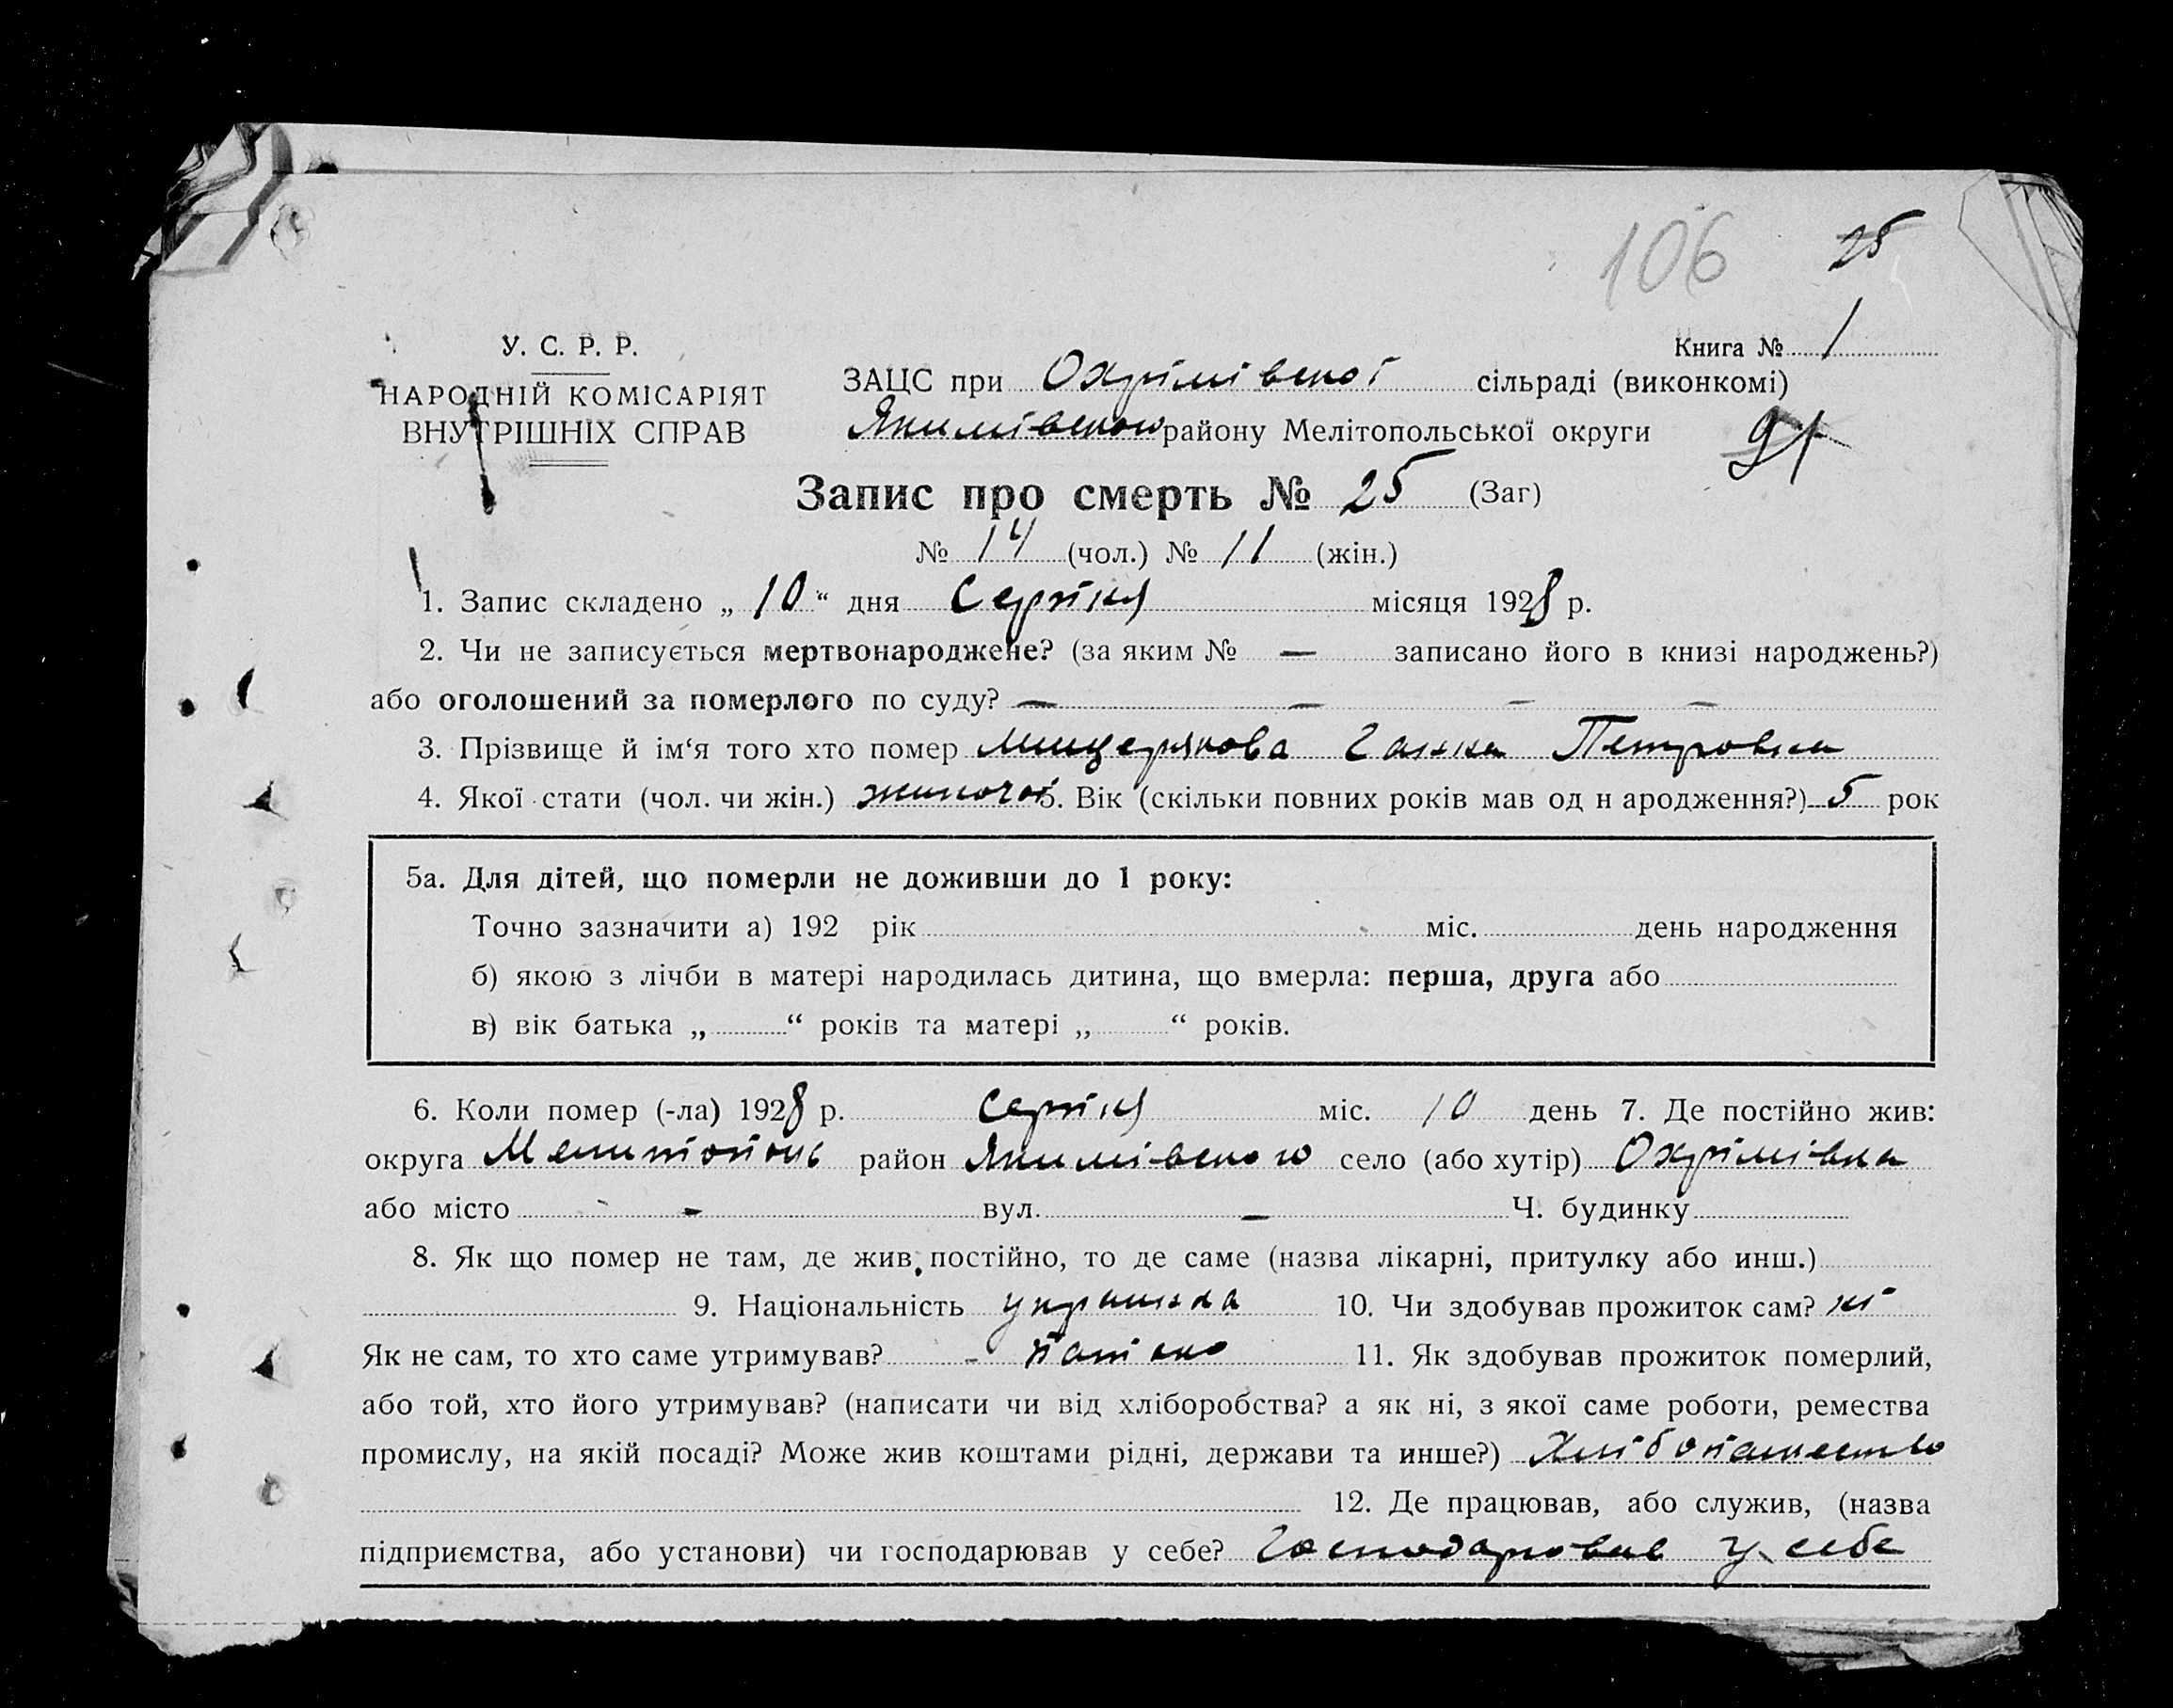 106 25
У. С. Р. Р.
НАРОДНІЙ КОМІСАРІЯТ
ВНУТРІШНІХ СПРАВ
Книга № 1
ЗАЦС при Охрімівської сільраді (виконкомі)
Якимівского району Мелітопольської округи
91
Запис про смерть № 25 (Заг)
№ 14 (чол.) № 11 (жін.)
1. Запис складено „ 10 “ дня Серпня місяця 1928 р.
2. Чи не записується мертвонароджене? (за яким № — записано його в книзі народжень?)
або оголошений за померлого по суду? — — — —
3. Прізвище й ім‘я того хто помер Мищерякова Ганна Петровна
4. Якої стати (чол. чи жін.) жиночої 5. Вік (скільки повних років мав од н ародження?) 5 рок
5а. Для дітей, що померли не доживши до 1 року:
Точно зазначити а) 192 рік міс. день народження
б) якою з лічби в матері народилась дитина, що вмерла: перша, друга або
в) вік батька „ “ років та матері „ “ років.
6. Коли помер (-ла) 1928 р. Серпня міс. 10 день 7. Де постійно жив:
округа Мелитополь район Якимівского село (або хутір) Охрімівка
або місто - вул. — Ч. будинку
8. Як що помер не там, де жив, постійно, то де саме (назва лікарні, притулку або инш.)
9. Національність украинка 10. Чи здобував прожиток сам? ні
Як не сам, то хто саме утримував? - батько 11. Як здобував прожиток померлий,
або той, хто його утримував? (написати чи від хліборобства? а як ні, з якої саме роботи, ремества
промислу, на якій посаді? Може жив коштами рідні, держави та инше?) Хлібопашество
12. Де працював, або служив, (назва
підприємства, або установи) чи господарював у себе? Господаровав у себе